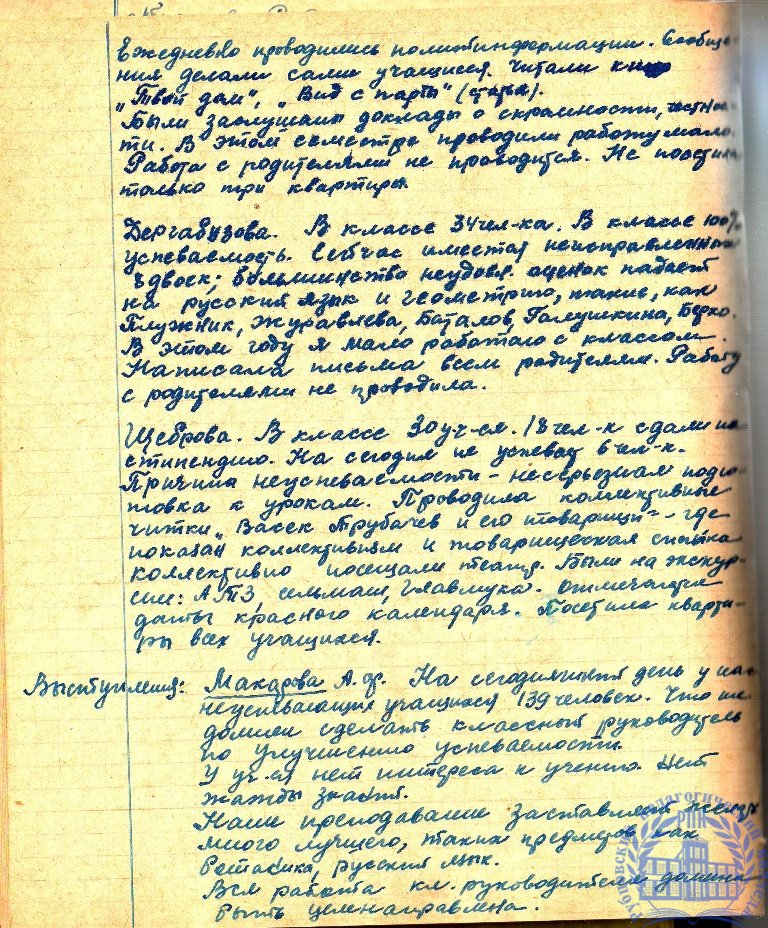 Ежедневно проводились политинформации. Сообще-
ния делали сами учащиеся. Читали
„Твой дом", „Вид с парты" (статья).
Были заслушаны доклады о скромности, честнос-
ти. В этом семестре проводили работу мало.
Работа с родителями не проводится. Не посетила
только три квартиры
Дергабузова. В классе 34 чел-ка. В классе 100%
успеваемость. Сейчас имеется неисправленных
8 двоек; большинство неудовл. оценок падает
на русский язык и геометрию, такие, как
Плужник, Журавлева, Баталов, Галушкина, Берко.
В этом году я мало работаю с классом.
Написала письма всем родителям. Работу
с родителями не проводила.
Щеброва. В классе 30 уч-ся. 18 чел-к сдали на
стипендию. На сегодня не успевает 6 чел-к.
Причина неуспеваемости – несерьезная подго-
товка к урокам. Проводила коллективные
читки „Васек Трубачев и его товарищи" – где
показан коллективизм и товарищеская спайка
коллективно посещали театр. Были на экскур-
сии: АТЗ, сельмаш, Отмечаются
даты красного календаря. Посетила кварти-
ры всех учащихся.
Выступления: Макарова А. ф. На сегодняшний день у нас
неуспевающих учащихся 139 человек. Что же
должен сделать классный руководитель
по улучшению успеваемости.
У уч-ся нет интереса к учению. Нет
жажды знаний.
Наше преподавание заставляет желать
много лучшего, таких предметов как
Ботаника, русский язык.
Вся работа кл. руководителя должна
быть целенаправлена.